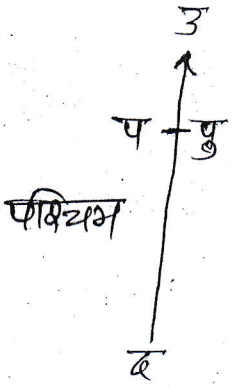 उ
प पु
पश्चिम
द